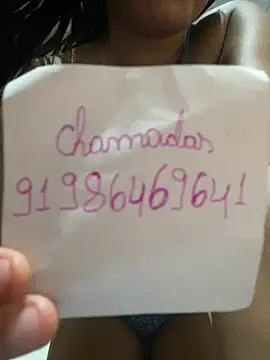 Chamadas
91986469641